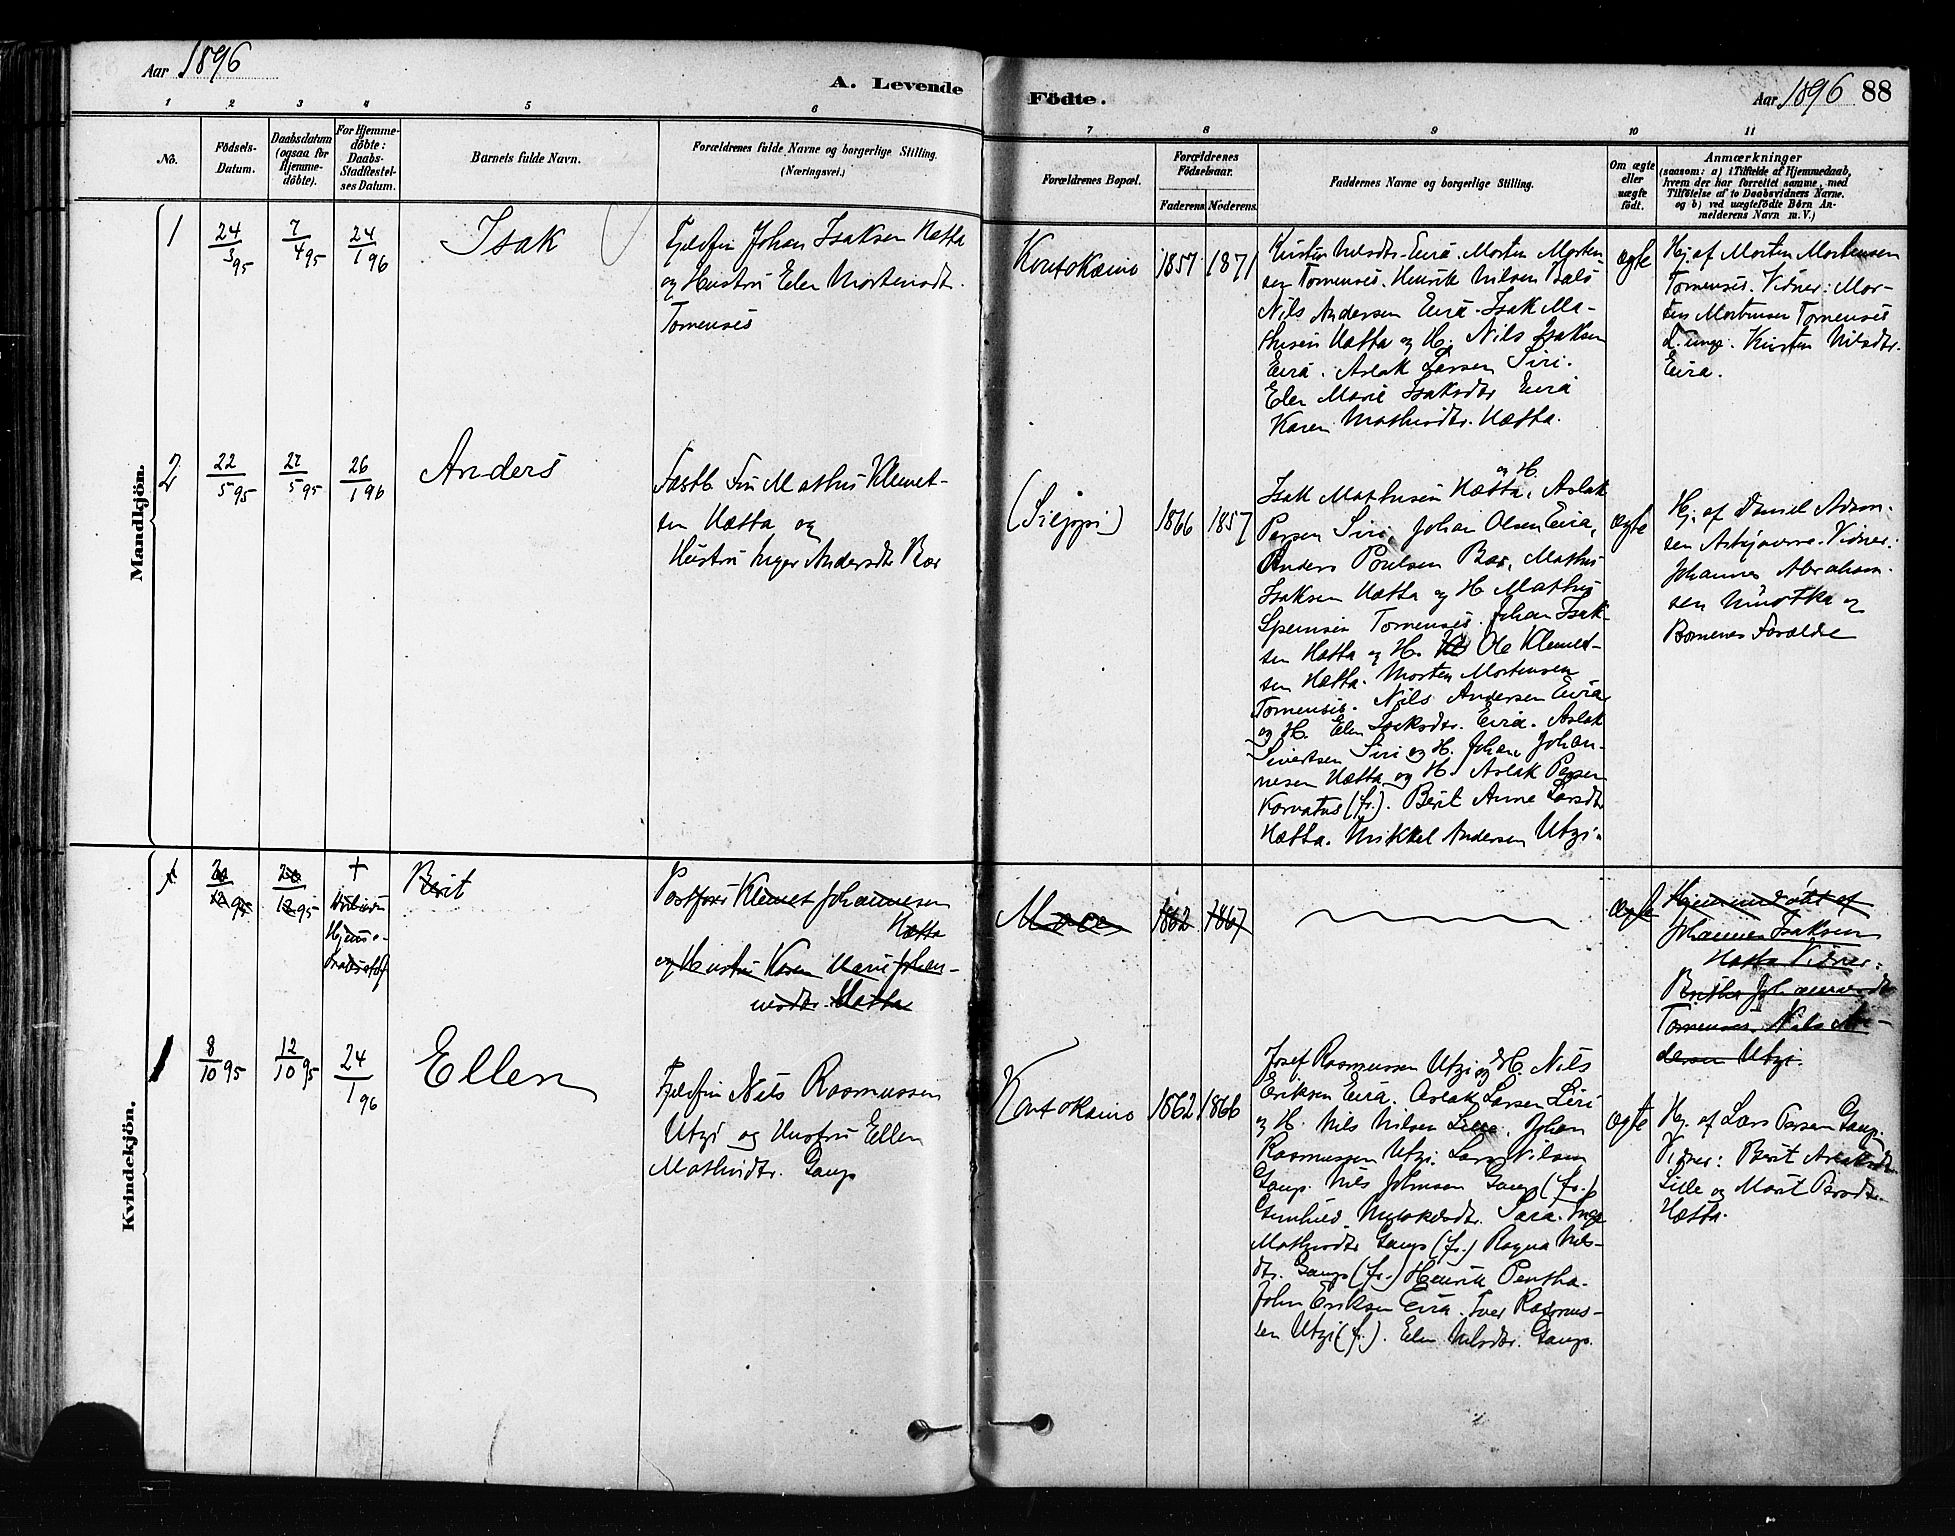 Aar 1896
A. Levende
Födte.
Aar 1896 88
1 2 3 4 5 6 7 8 9 10 11
No.
Födsels-
Datum.
Daabsdatum
(ogsaa for
Hjemme-
döbte).
For Hjemme-
döbte:
Daabs-
Stadfæstel-
ses Datum.
Barnets fulde Navn.
Forældrenes fulde Navne og borgerlige Stilling.
(Næringsvei.)
Forældrenes Bopæl.
Forældrenes
Födselsaar.
Faderens. Moderens.
Faddernes Navne og borgerlige Stilling.
Om ægte
eller
uægte
födt.
Anmærkninger
(saasom: a) i Tilfælde af Hjemmedaab,
hvem der har forrettet samme, med
Tilföielse af to Daabsvidners Navne.
og b) ved uægtefödte Börn An-
melderens Navn m. V.)
Mandkjön.
1
24/3 95
7/4 95
24/1 96
Isak
Fjeldfin Johan Isaksen Hætta
og Hustru Elen Mortensdt.
Tornensis
Koutokæino
1857
1871
Kirsten Nilsdtr. Eira. Morten Morten-
sen Tornensis. Henrik Nilsen
Nils Andersen Eira. Isak Ma-
thisen Hætta og H. Nils Isaksen
Eira. Aslak Larsen Siri.
Elen Marie Isaksdtr Eira
Karen Mathisdtr. Hætta.
ægte
Hj. af Morten Mortensen
Tornensis. Vidner: Mor-
ten Mortensen Tornensis
d. unge. Kirsten Nilsdtr.
Eira.
2
22/5 95
27/5 95
26/1 96
Anders
Fastb. Fin Mathis Klemet-
sen Hætta og
Hustru Inger Andersdtr Bær
(Siejppi)
1866
1857
og H.
Isak Mathisen Hætta, Aslak
Persen Siri, Johan Olsen Eira,
Anders Poulsen Bær, Mathis
Isaksen Hætta og H. Mathis
Tornensis. Johan Isak-
sen Hætta og H. Ole Klemet-
sen Hætta. Morten Mortensen
Tornensis. Nils Andersen Eira
og H. Elen Isaksdtr. Eira. Aslak
Sivertsen Siri og H. Johan Johan-
nesen Hætta og H. Aslak Persen
Korvatus (fr.). Berit Anne Larsdtr
Hætta. Mikkel Andersen Utzi.
ægte
Hj. af Daniel Adam-
sen. Vidner:
Johannes Abraham-
sen og
Barnenes Forældre
Kvindekjön.
1
20/12 95
20/12 95
+
Hjemme-
Berit
Postfører Klemet Johannesen
Hætta
og Hustru Karen Marie Johan-
nesdtr. Hætta
1862
1867
ægte
Johannes Isaksen
Hætta Vidner:
Tornensis. Nils An-
dersen Utzi.
1
8/10 95
12/10 95
24/1 96
Ellen
Fjeldfin Nils Rasmussen
Utzi og Hustru Ellen
Mathisdtr. Gaup
Koutokæino
1862
1866
Josef Rasmussen Utzi og H. Nils
Eriksen Eira. Aslak Larsen Siri
og H. Nils Nilsen Lille. Johan
Rasmussen Utzi. Lars Nilsen
Gaup. Nils Johnsen Gaup (fr.)
Gunhild Sara. Inga
Mathisdtr Gaup (fr.) Ragna Nils-
dtr. Gaup (fr.) Henrik Pentha.
John Eriksen Eira. Iver Rasmus-
sen Utzi (fr.). Elen Nilsdtr. Gaup.
ægte
Hj. af Lars Persen Gaup.
Vidner: Berit Aslaksdtr
Lille og Marit Persdtr.
Hætta.